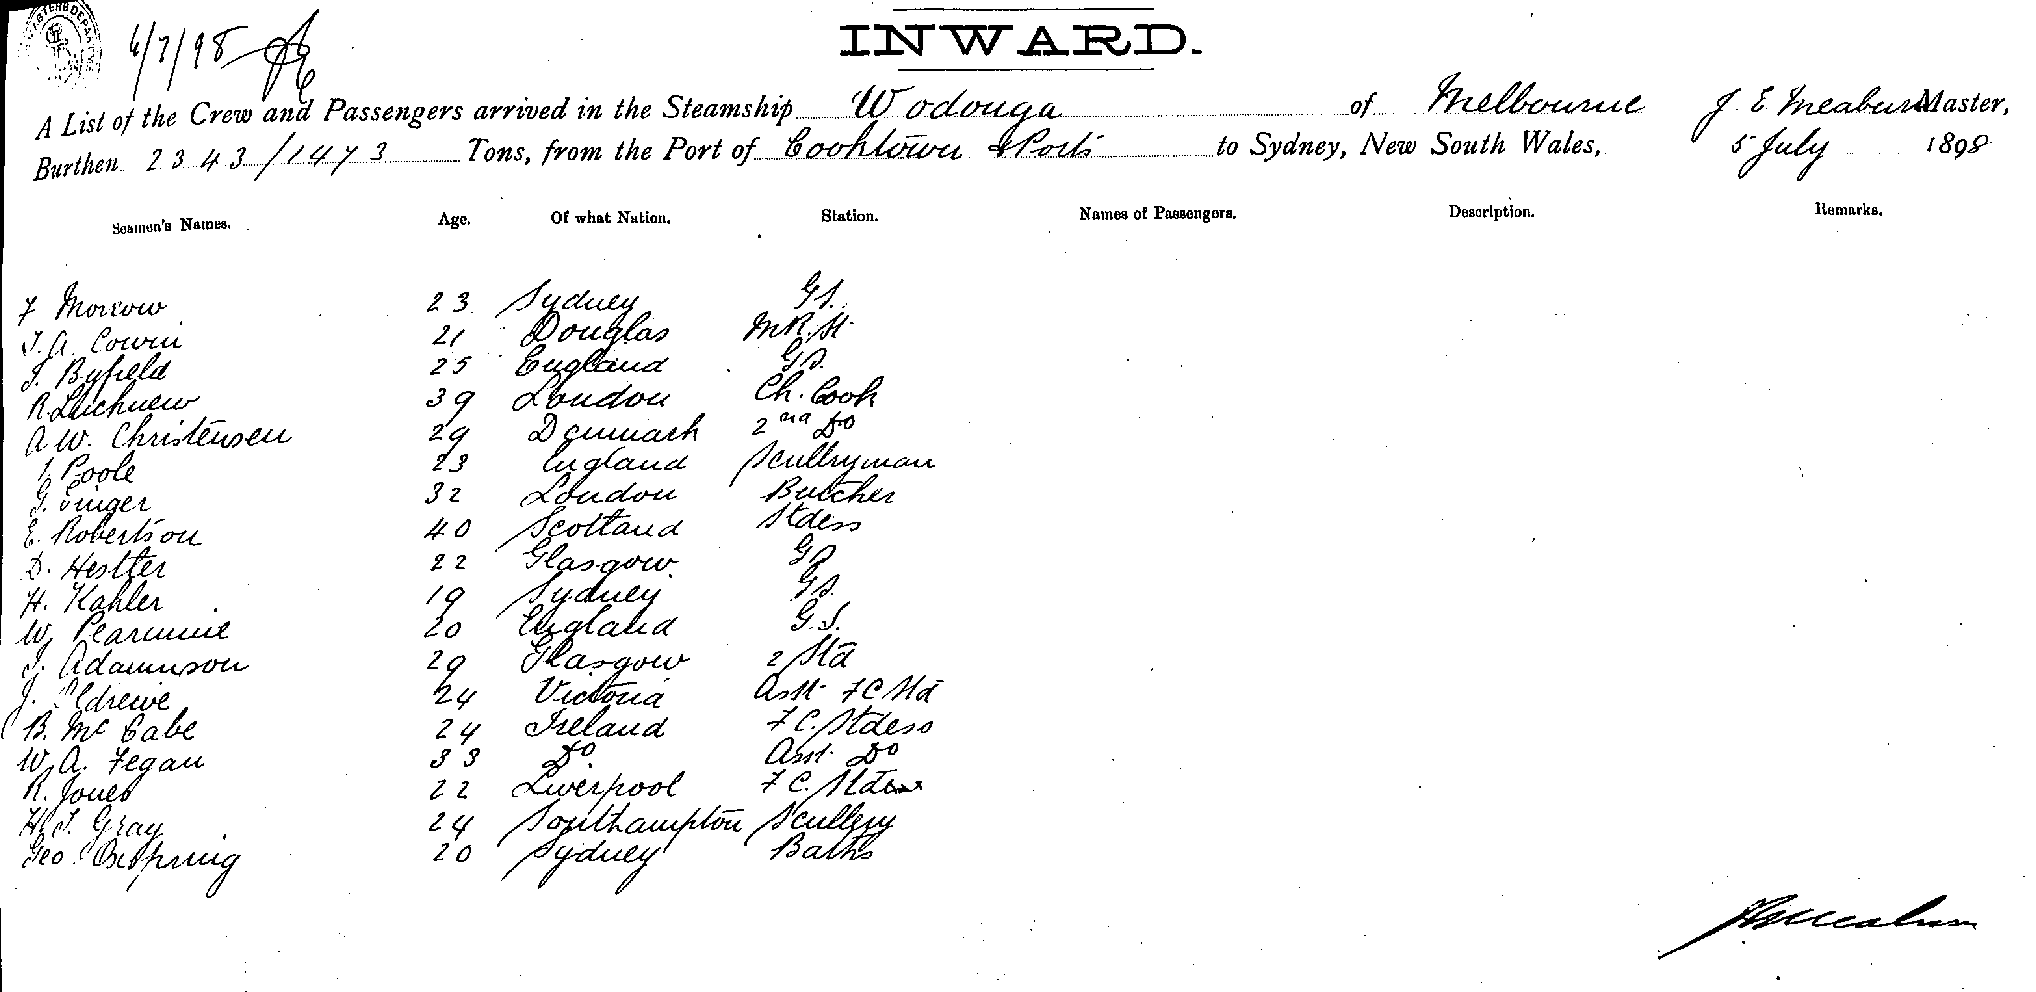 6/7/98
INWARD.
A List of the Crew and Passengers arrived in the Steamship Wodonga of Melbourne J. E Meaburn Master,
Burthen 2343/1473 Tons, from the Port of Cooktown & Ports to Sydney, New South Wales, 5 July 1898
Seamen's Names. Age. Of what Nation. Station. Names of Passengers. Description. Remarks.
F Morrow 23 Sydney GS.
J. A. Cowin 21 Douglas MR. St
J. Byfield 25 England GS.
R. 39 London Ch. Cook
A W. Christensen 29 Denmark 2nd Do
J. Poole 23 England Scullryman
G. Vinger 32 London Butcher
E. Robertson 40 Scotland Stdess
D. Hestter 22 Glasgow GS
H. Kahler 19 Sydney GS.
W. Pearmine 20 England G.S.
J. Adamnson 29 Glasgow 2 Std
J. 24 Victoria Asst F C Std
B. McCabe 24 Ireland F C. Stdess
W. A. Fegan 33 Do. Asst. Do
R. Jones 22 Liverpool F C. Std
H. J. Gray 24 Southampton Scullery
Geo. 20 Sydney Baths